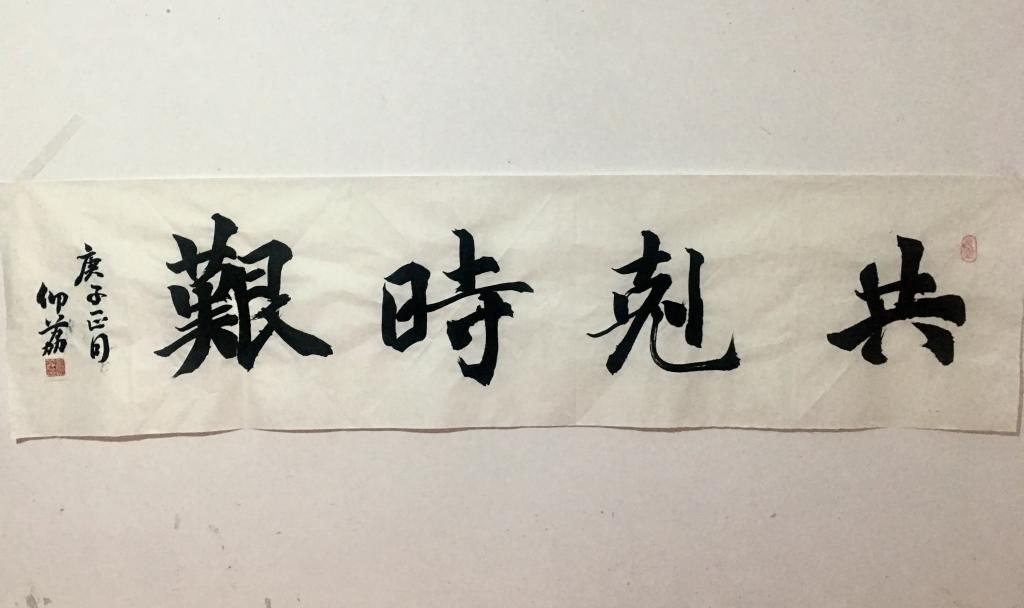 共剋時艱
庚子正月
仰荔